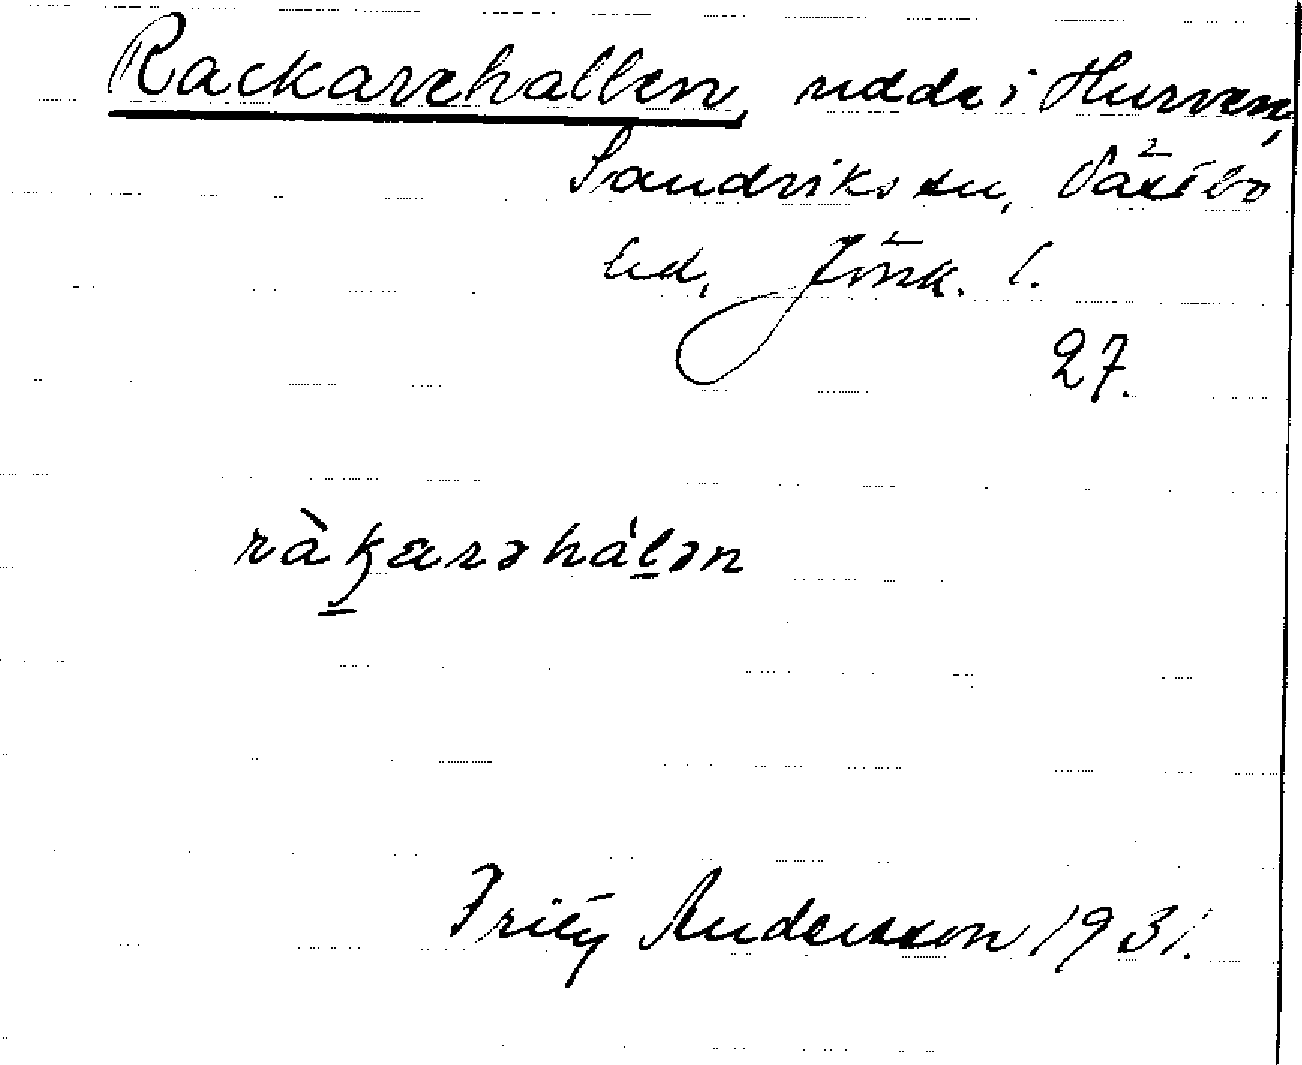 Rackarehallen, udde i Hurven,
Sandviks sn, Västbo
hd, Jönk. l.
27.
ràkarəhálən
Fritz Andersson 1931.